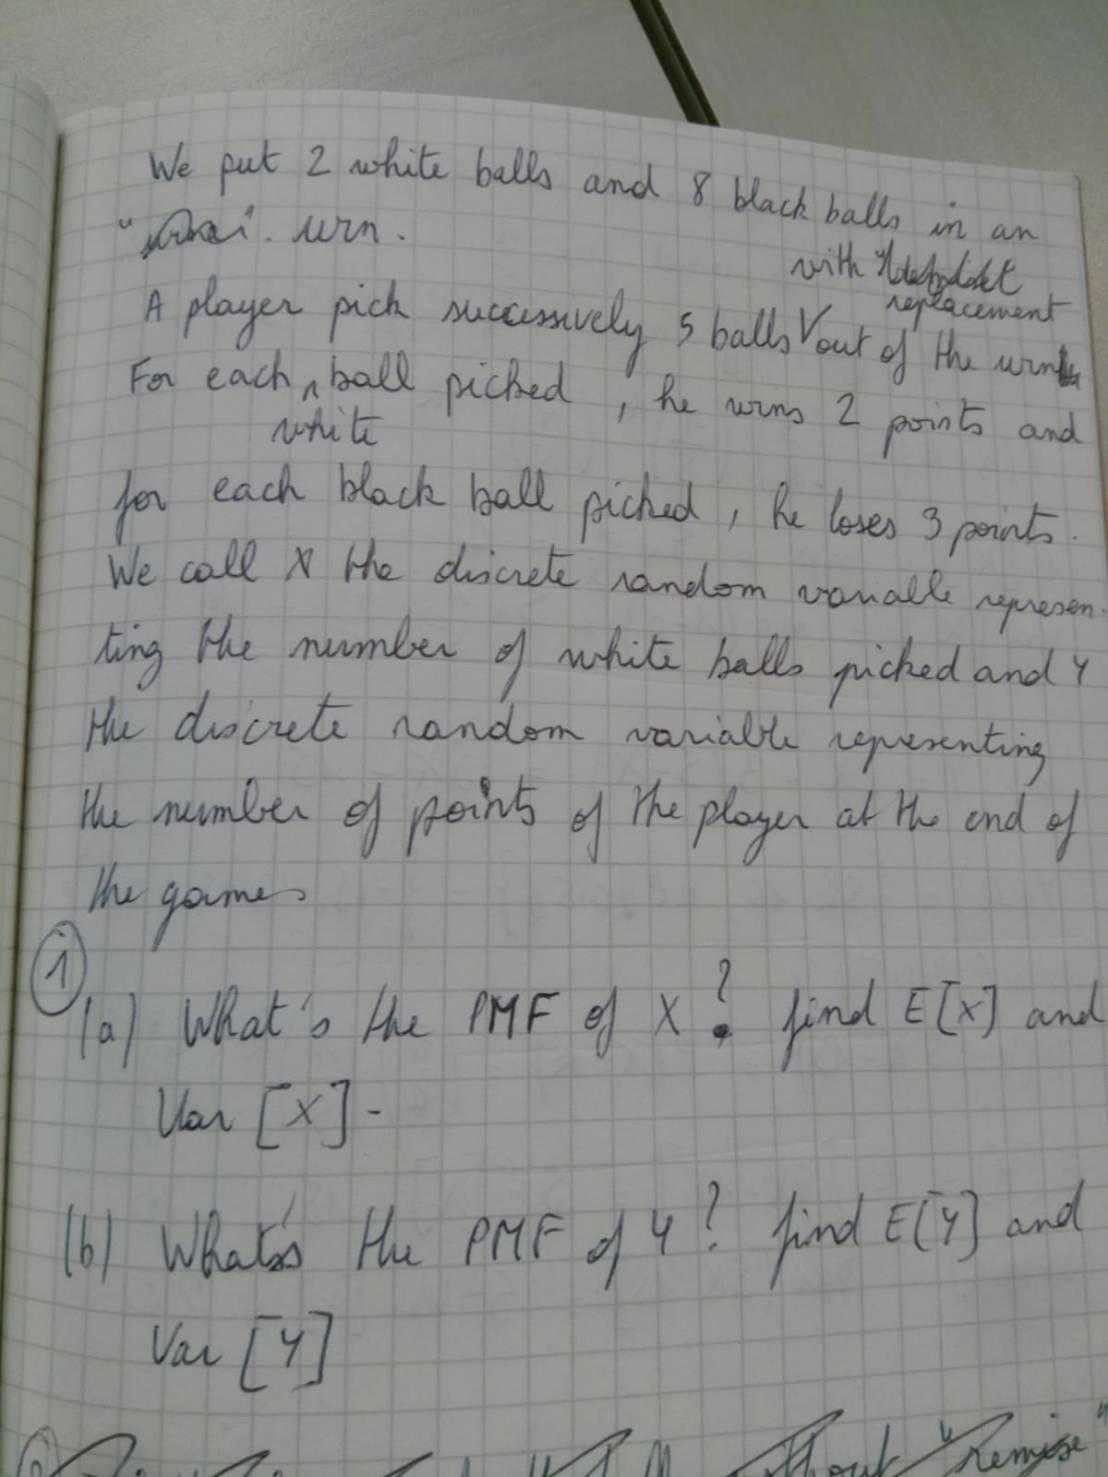 We put 2 white balls and 8 black balls in an
urn.
with
replacement
A player pick successively 5 balls out of the urn
For each ball picked, he wins 2 points and
white
for each black ball picked, he loses 3 points.
We call X the discrete random variable represen-
ting the number of white balls picked and Y
the discrete random variable representing
the number of points of the player at the end of
the games
1
(a) What's the PMF of X? find E[X] and
Var [X].
(b) What's the PMF of Y? find E[Y] and
Var [Y]
without "remise"